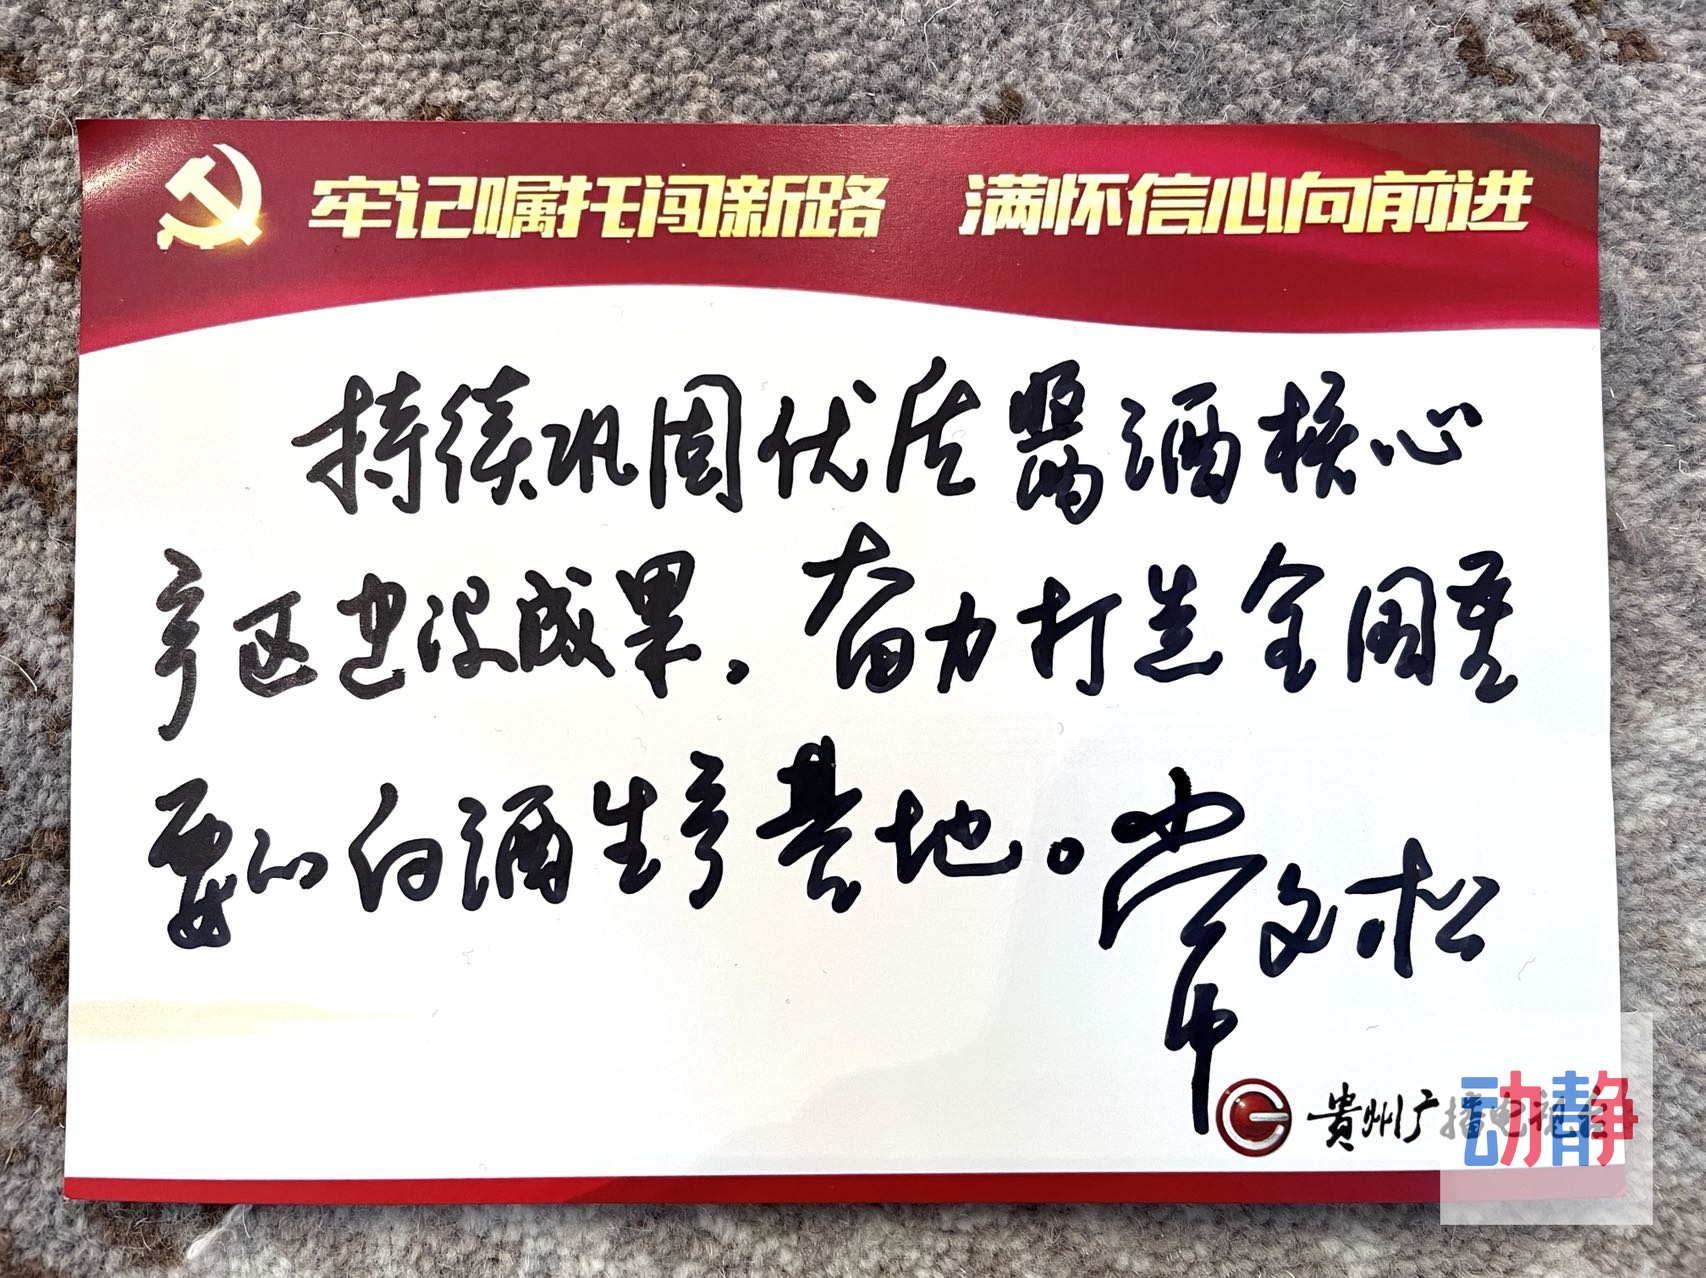 牢记嘱托闯新路 满怀信心向前进
持续巩固优质酱酒核心
产区建设成果,奋力打造全国重
要的白酒生产基地。常文松
贵州广播电视台
动静